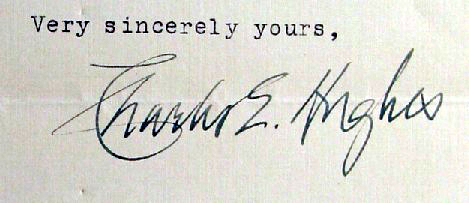 Very sincerely yours,
Charles E. Hughes